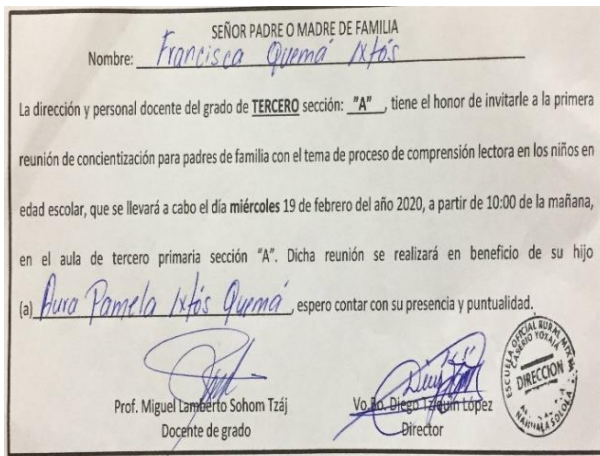 SEÑOR PADRE O MADRE DE FAMILIA
Nombre: Francisca Quemá Ixtós
La dirección y personal docente del grado de TERCERO sección: "A" , tiene el honor de invitarle a la primera
reunión de concientización para padres de familia con el tema de proceso de comprensión lectora en los niños en
edad escolar, que se llevará a cabo el día miércoles 19 de febrero del año 2020, a partir de 10:00 de la mañana,
en el aula de tercero primaria sección "A". Dicha reunión se realizará en beneficio de su hijo
(a) Aura Pamela Ixtós Quemá , espero contar con su presencia y puntualidad.
Prof. Miguel Lamberto Sohom Tzáj
Docente de grado
Vo.Bo. Diego Tziquin López
Director
ESCUELA OFICIAL RURAL MIXTA
CASERIO
DIRECCIÓN
NAHUALA SOLOLA